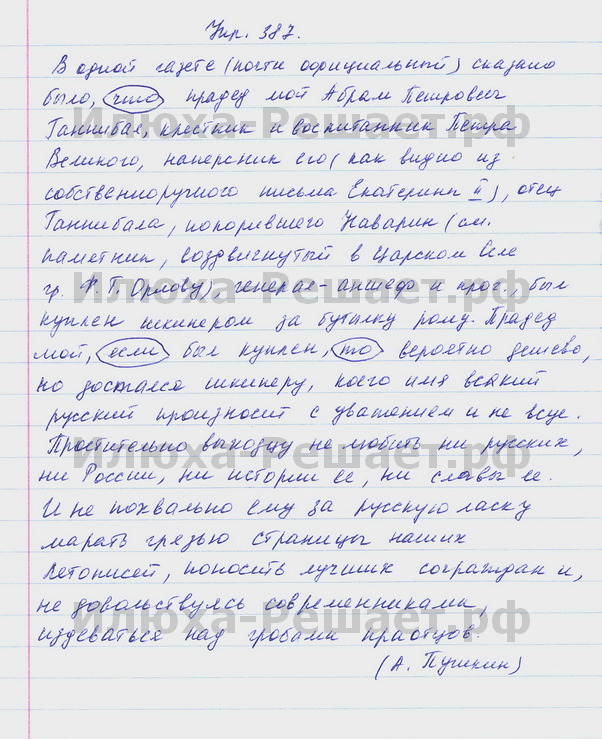 Упр. 387.
В одной газете (почти официальный) сказано
было, что прадед мой Абрам Петрович
Ганнибал, крестник и воспитанник Петра
Великого, наперсник его (как видно из
собственноручного письма Екатерины II), отец
Ганнибала, покорившего Наварин (см.
памятник, воздвигнутый в Царском Селе
гр. Ф. Г. Орлову), генерал-аншеф и проч., был
куплен шкипером за бутылку рому. Прадед
мой, если был куплен, то вероятно дешево,
но достался шкиперу, коего имя всякий
русский произносит с уважением и не всуе.
Простительно выходцу не любить ни русских,
ни России, ни истории ее, ни славы ее.
И не похвально ему за русскую ласку
марать грязью страницы наших
летописей, поносить лучших сограждан и,
не довольствуясь современниками,
издеваться над гробами праотцов.
(А. Пушкин)
Илюха-Решает.рф
Илюха-Решает.рф
Илюха-Решает.рф
Илюха-Решает.рф